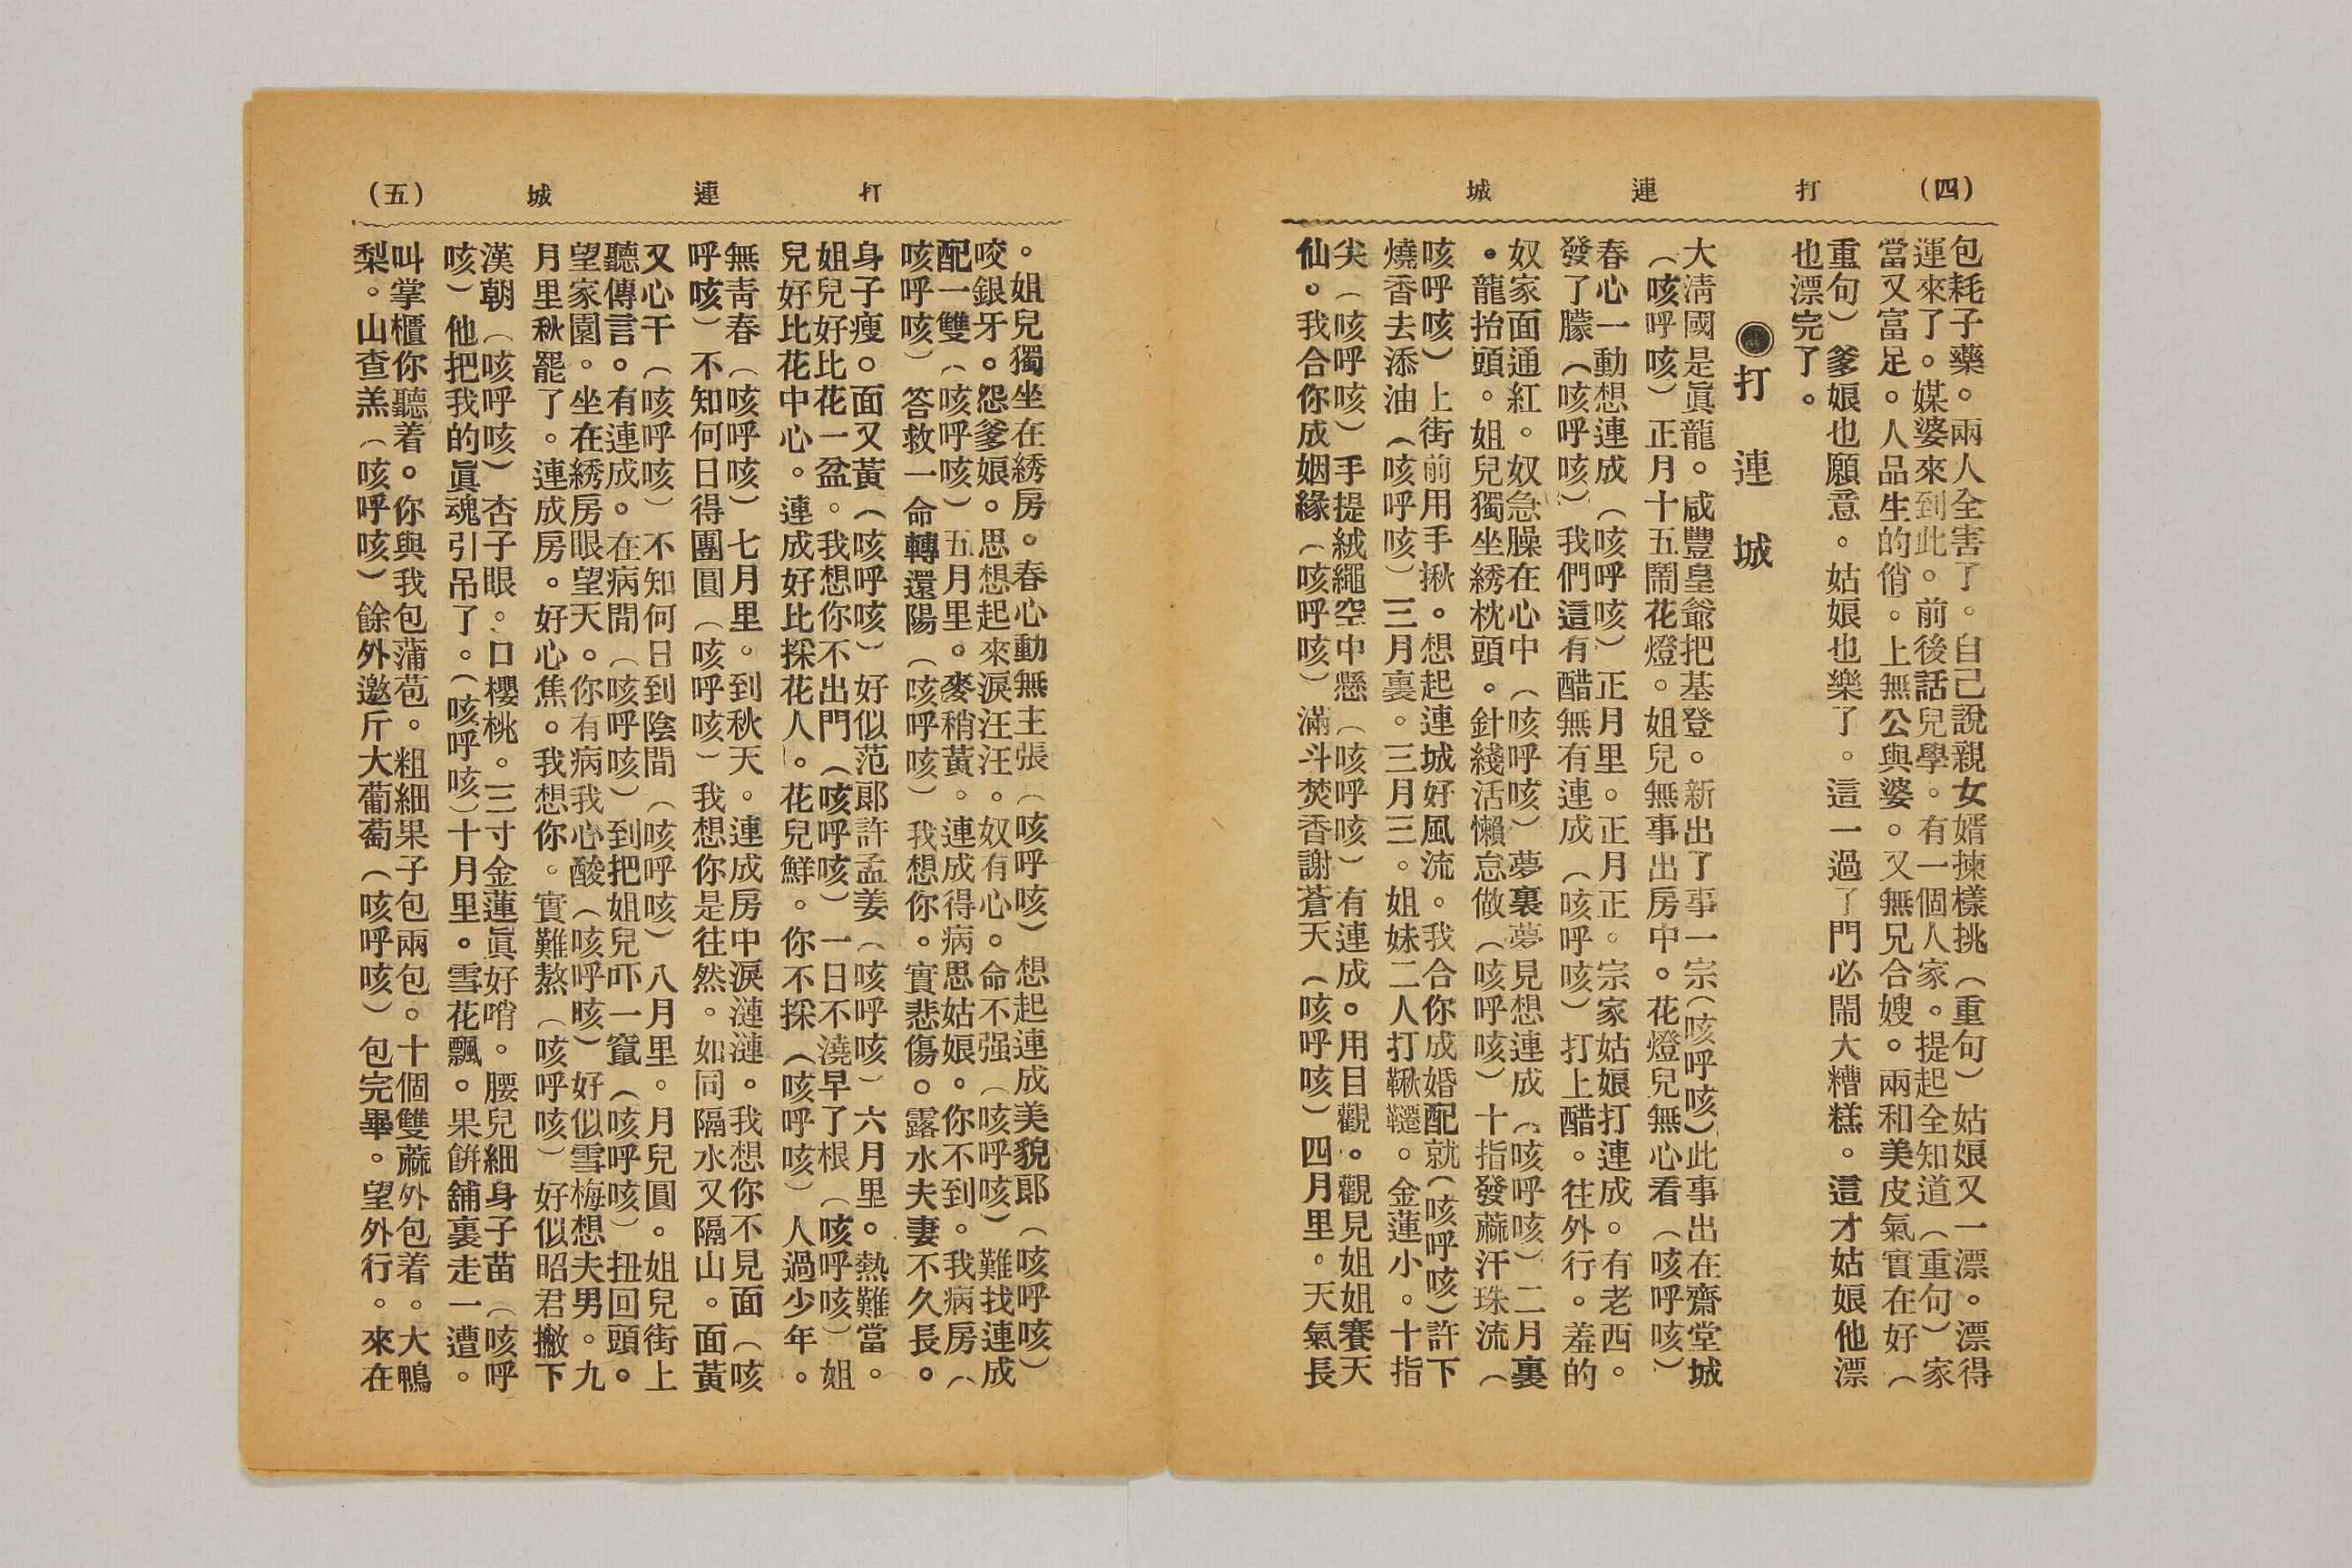 (四) 打連城
包耗子藥。兩人全害了。自己說親女婿揀樣挑(重句)姑娘又一漂。漂得
運來了。媒婆來到此。前後話兒學。有一個人家。提起全知道(重句)家
當又富足。人品生的俏。上無公與婆。又無兄合嫂。兩和美皮氣實在好(
重句)爹娘也願意。姑娘也樂了。這一過了門必鬧大糟糕。這才姑娘他漂
也漂完了。
打連城
大淸國是眞龍。咸豐皇爺把基登。新出了事一宗(咳呼咳)此事出在齋堂城
(咳呼咳)正月十五鬧花燈。姐兒無事出房中。花燈兒無心看(咳呼咳)
春心一動想連成(咳呼咳)正月里。正月正。宗家姑娘打連成。有老西。
發了朦(咳呼咳)我們這有醋無有連成(咳呼咳)打上醋。往外行。羞的
奴家面通紅。奴急臊在心中(咳呼咳)夢裏夢見想連成(咳呼咳)二月裏
。龍抬頭。姐兒獨坐綉枕頭。針綫活懶怠做(咳呼咳)十指發蔴汗珠流(
咳呼咳)上街前用手揪。想起連城好風流。我合你成婚配就(咳呼咳)許下
燒香去添油(咳呼咳)三月裏。三月三。姐妹二人打鞦韆。金蓮小。十指
尖(咳呼咳)手提絨繩空中懸(咳呼咳)有連成。用目觀。觀見姐姐賽天
仙。我合你成姻緣(咳呼咳)滿斗焚香謝蒼天(咳呼咳)四月里。天氣長
打連城 (五)
。姐兒獨坐在綉房。春心動無主張(咳呼咳)想起連成美貌郎(咳呼咳)
咬銀牙。怨爹娘。思想起來淚汪汪。奴有心。命不强(咳呼咳)難找連成
配一雙(咳呼咳)五月里。麥稍黃。連成得病思姑娘。你不到。我病房(
咳呼咳)答救一命轉還陽(咳呼咳)我想你。實悲傷。露水夫妻不久長。
身子瘦。面又黃(咳呼咳)好似范郎許孟姜(咳呼咳)六月里。熱難當。
姐兒好比花一盆。我想你不出門(咳呼咳)一日不澆早了根(咳呼咳)姐
兒好比花中心。連成好比採花人。花兒鮮。你不採(咳呼咳)人過少年。
無靑春(咳呼咳)七月里。到秋天。連成房中淚漣漣。我想你不見面(咳
呼咳)不知何日得團圓(咳呼咳)我想你是往然。如同隔水又隔山。面黃
又心干(咳呼咳)不知何日到陰間(咳呼咳)八月里。月兒圓。姐兒街上
聽傳言。有連成。在病間(咳呼咳)到把姐兒吓一竄(咳呼咳)扭回頭。
望家園。坐在綉房眼望天。你有病我心酸(咳呼咳)好似雪梅想夫男。九
月里秋罷了。連成房。好心焦。我想你。實難熬(咳呼咳)好似昭君撇下
漢朝(咳呼咳)杏子眼。口櫻桃。三寸金蓮眞好哨。腰兒細身子苗(咳呼
咳)他把我的眞魂引吊了。(咳呼咳)十月里。雪花飄。果餅舖裏走一遭。
叫掌櫃你聽着。你與我包蒲苞。粗細果子包兩包。十個雙蔴外包着。大鴨
梨。山查羔(咳呼咳)餘外邀斤大葡萄(咳呼咳)包完畢。望外行。來在